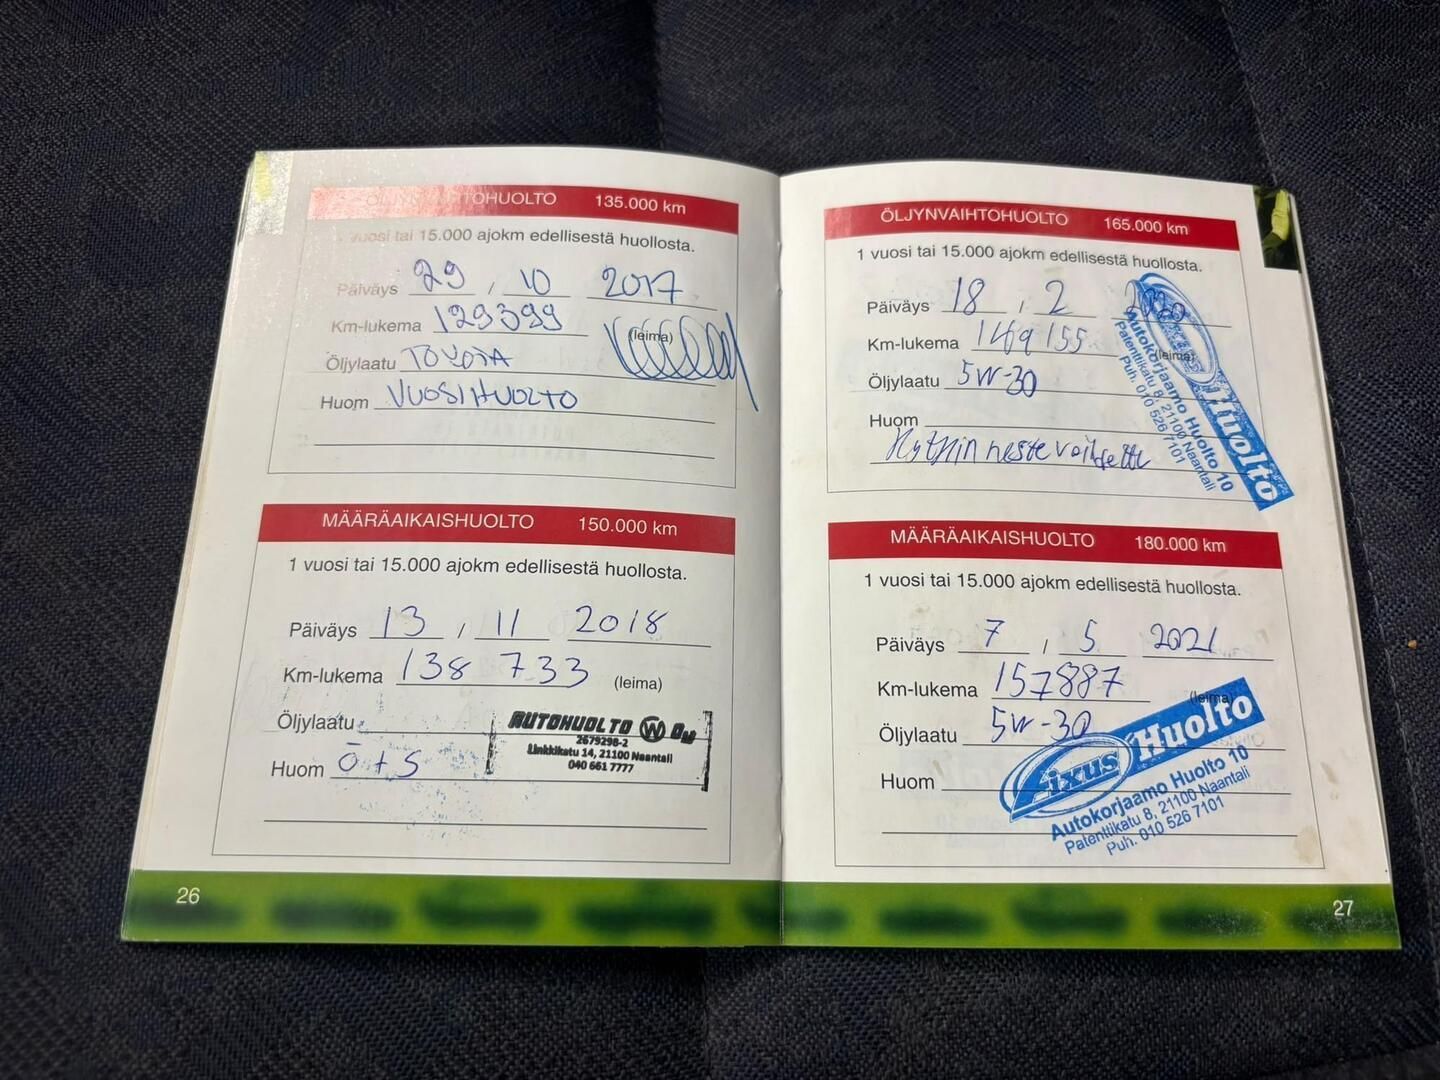 ÖLJYNVAIHTOHUOLTO 135.000 km
1 vuosi tai 15.000 ajokm edellisestä huollosta.
Päiväys 29 , 10 2017
Km-lukema 129399
(leima)
Öljylaatu TOYOTA
Huom VUOSIHUOLTO
MÄÄRÄAIKAISHUOLTO 150.000 km
1 vuosi tai 15.000 ajokm edellisestä huollosta.
Päiväys 13 / 11 2018
Km-lukema 138 733 (leima)
Öljylaatu
Huom Ö + S
AUTOHUOLTO W Oy
2679298-2
Linkkikatu 14, 21100 Naantali
040 661 7777
26
ÖLJYNVAIHTOHUOLTO 165.000 km
1 vuosi tai 15.000 ajokm edellisestä huollosta.
Päiväys 18 , 2 2020
Km-lukema 149 155 (leima)
Öljylaatu 5W-30
Huom
neste
Fixus Huolto
Autokorjaamo Huolto 10
Patenttikatu 8, 21100 Naantali
Puh. 010 526 7101
MÄÄRÄAIKAISHUOLTO 180.000 km
1 vuosi tai 15.000 ajokm edellisestä huollosta.
Päiväys 7 / 5 2021
Km-lukema 157887 (leima)
Öljylaatu 5W-30
Huom
Fixus Huolto
Autokorjaamo Huolto 10
Patenttikatu 8, 21100 Naantali
Puh. 010 526 7101
27